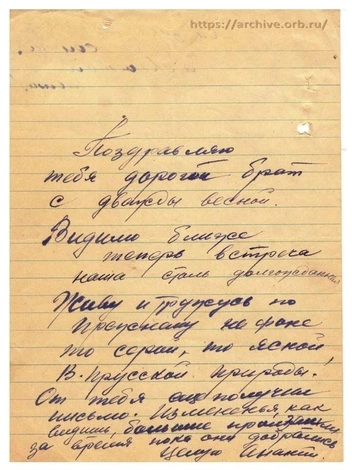 https://archive.orb.ru/
Поздравляю
тебя дорогой брат
с дважды весной.
Видимо ближе
теперь встреча
наша столь долгожданная
Живу и тружусь по
прежнему на фоне
то серой, то ясной
В. Прусской природы.
От тебя получил
письмо. Изменения, как
видишь, большие произошли
за время пока они добрались
Целую